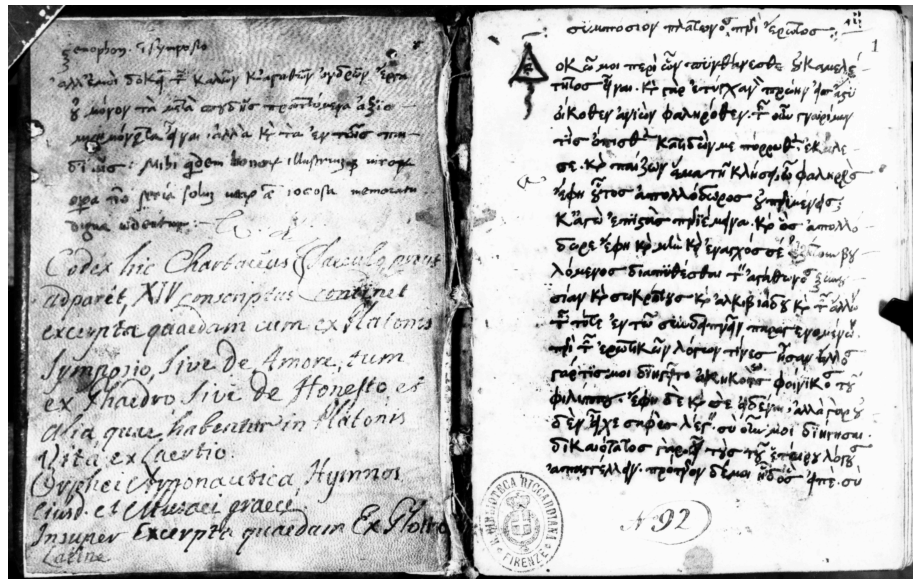 Xenophon. Symposio
ἀλλ' ἐμοὶ δοκεῖ τῶν καλῶν κἀγαθῶν ἀνδρῶν ἔργα
οὐ μόνον τὰ μετὰ σπουδῆς πραττόμενα ἀξιο-
μνημόνευτα εἶναι, ἀλλὰ καὶ τὰ ἐν ταῖς παι-
διαῖς: Mihi quidem bonorum illustriumque virorum
opera non seria solum verum etiam iocosa memoratu
digna videntur.
Codex hic Chartaceus Saeculo, prout
adparet, XIV conscriptus continet
excerpta quaedam cum ex Platonis
Symposio, sive de Amore, tum
ex Phaedro, sive de Honesto, et
alia quae habentur in Platonis
Vita ex Laertio.
Orphei Argonautica, Hymnos
eiusd. et Musaei graece.
Insuper Excerpta quaedam Ex Plotino
Latine
συμπόσιον πλάτωνος περὶ ἔρωτος
1
Δοκῶ μοι περὶ ὧν πυνθάνεσθε οὐκ ἀμελέ-
τητος εἶναι. καὶ γὰρ ἐτύγχανον πρώην εἰς ἄστυ
οἴκοθεν ἀνιὼν φαληρόθεν. τῶν οὖν γνωρίμων
τις ὄπισθεν κατιδών με πόρρωθεν ἐκάλε-
σε. καὶ παίζων ἅμα τῇ κλήσει, ὦ φαληρεύς
ἔφη οὗτος ἀπολλόδωρος οὐ περιμένεις;
Κἀγὼ ἐπιστὰς περιέμεινα. καὶ ὃς ἀπολλό-
δωρε ἔφη καὶ μὴν καὶ ἔναγχός σε ἐζήτουν βου-
λόμενος διαπυθέσθαι τὴν ἀγάθωνος ξυνου-
σίαν καὶ σωκράτους καὶ ἀλκιβιάδου καὶ τῶν ἄλλων
τῶν τότε ἐν τῷ συνδείπνῳ παραγενομένων.
περὶ τῶν ἐρωτικῶν λόγων τίνες ἦσαν ἄλλος
γάρ τις μοι διηγεῖτο ἀκηκοὼς φοίνικος τοῦ
φιλίππου. ἔφη δὲ καὶ σὲ εἰδέναι. ἀλλὰ γὰρ οὐ-
δὲν εἶχε σαφὲς λέγειν. σὺ οὖν μοι διήγησαι.
δικαιότατος γὰρ εἶ τοὺς τοῦ ἑταίρου λόγους
ἀπαγγέλλειν. πρότερον δέ μοι ἦ δ' ὃς εἰπέ. σὺ
R. BIBLIOTECA RICCARDIANA FIRENZE
N 92